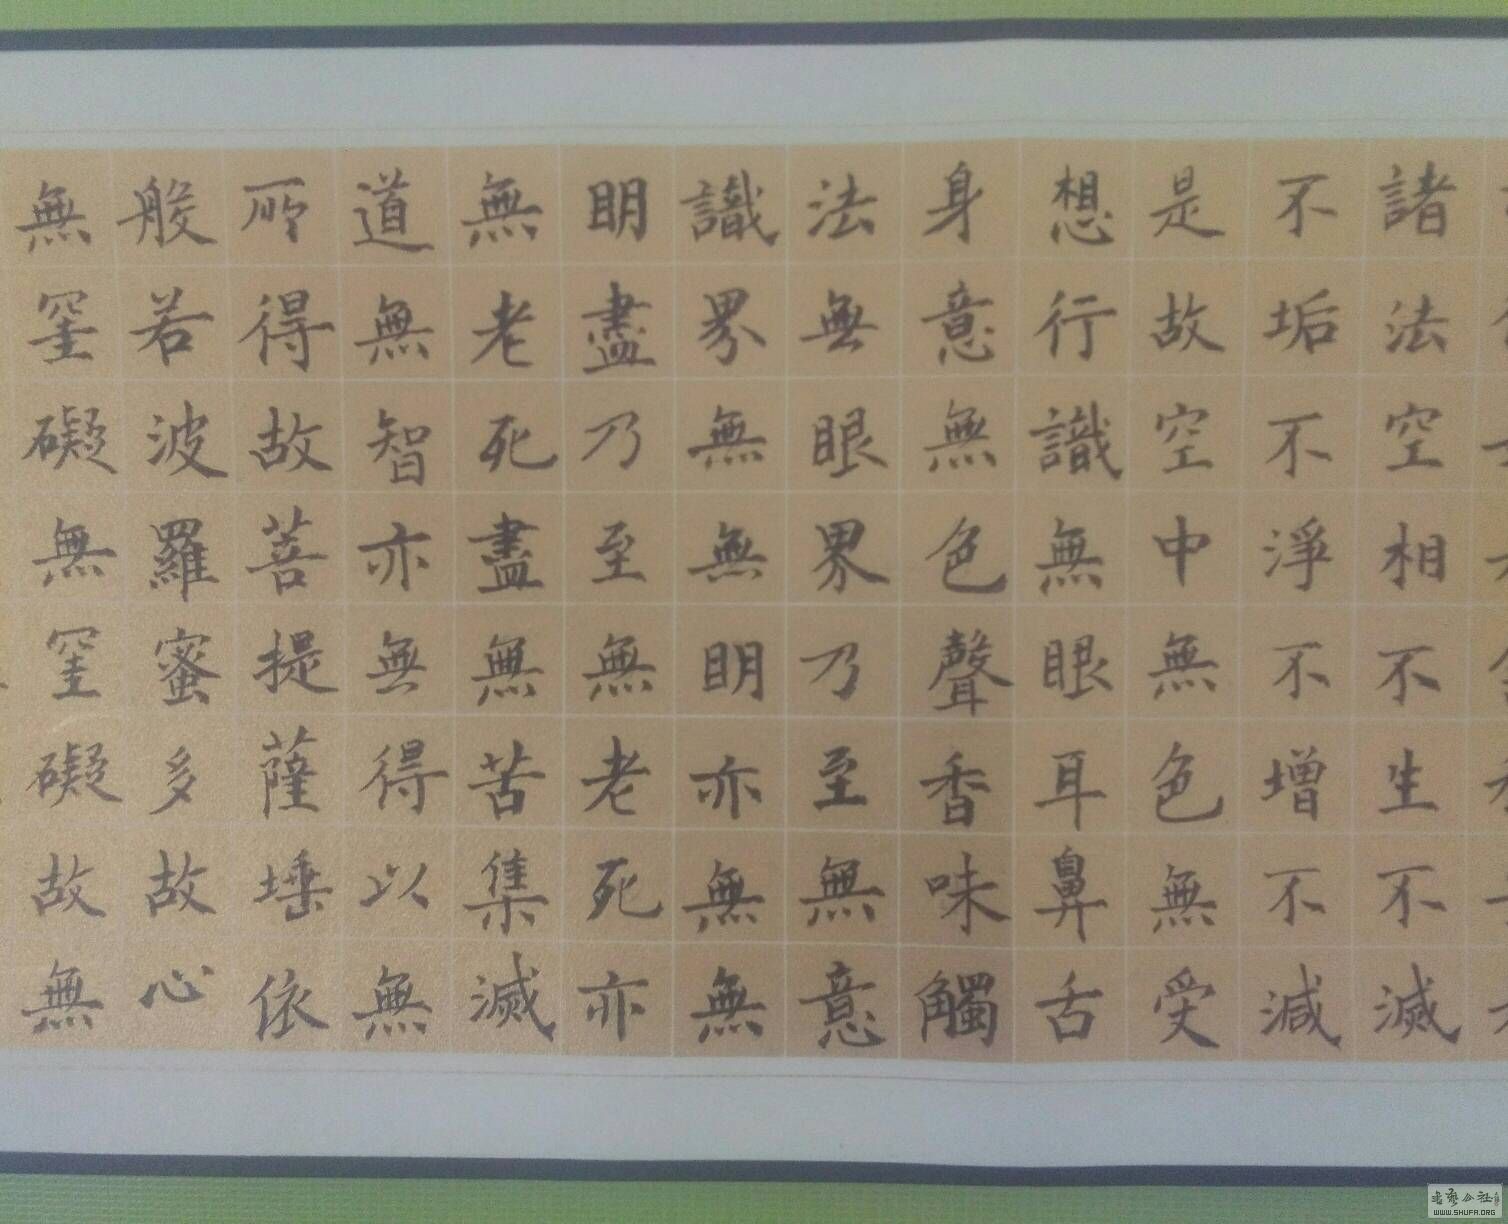 諸法空相不生不滅
不垢不淨不增不減
是故空中無色無受
想行識無眼耳鼻舌
身意無色聲香味觸
法無眼界乃至無意
識界無無明亦無無
明盡乃至無老死亦
無老死盡無苦集滅
道無智亦無得以無
所得故菩提薩埵依
般若波羅蜜多故心
無罣礙無罣礙故無
WWW.SHUFA.ORG